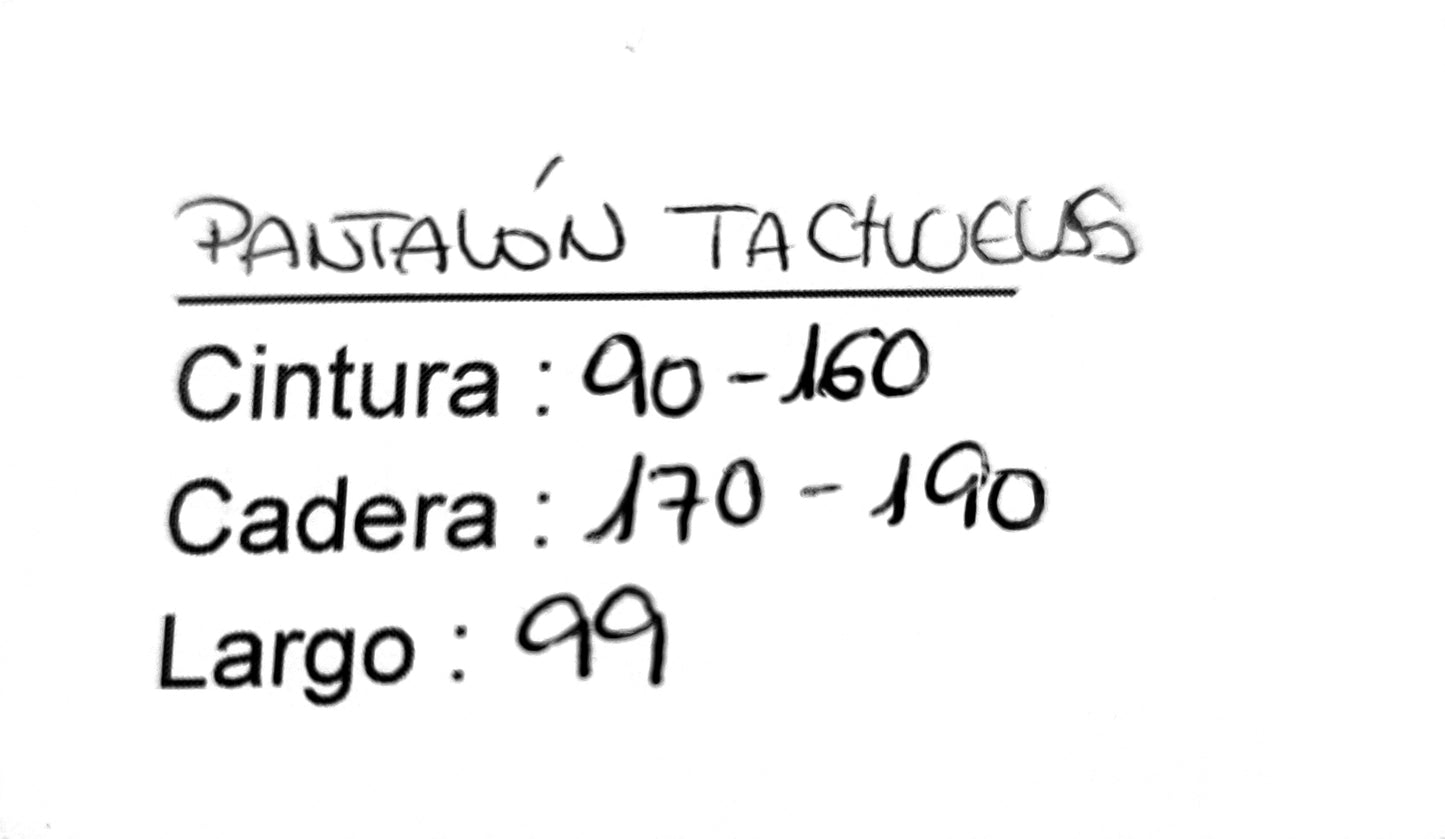 PANTALÓN TACHUELAS
Cintura : 90 - 160
Cadera : 170 - 190
Largo : 99